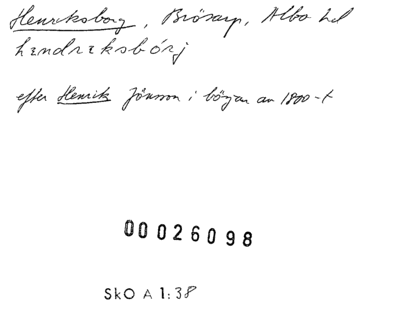 Henriksborg, Brösarp, Albo hd
hendreksbórj
efter Henrik Jönsson i början av 1800-t
00026098
SkO A 1:38